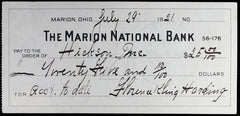 MARION, OHIO, July 29 1921 NO.
THE MARION NATIONAL BANK 56-176
PAY TO THE
ORDER OF Hickson, Inc. $25 00/100
Twenty five and no/100 DOLLARS
FOR Acct. to date Florence Kling Harding